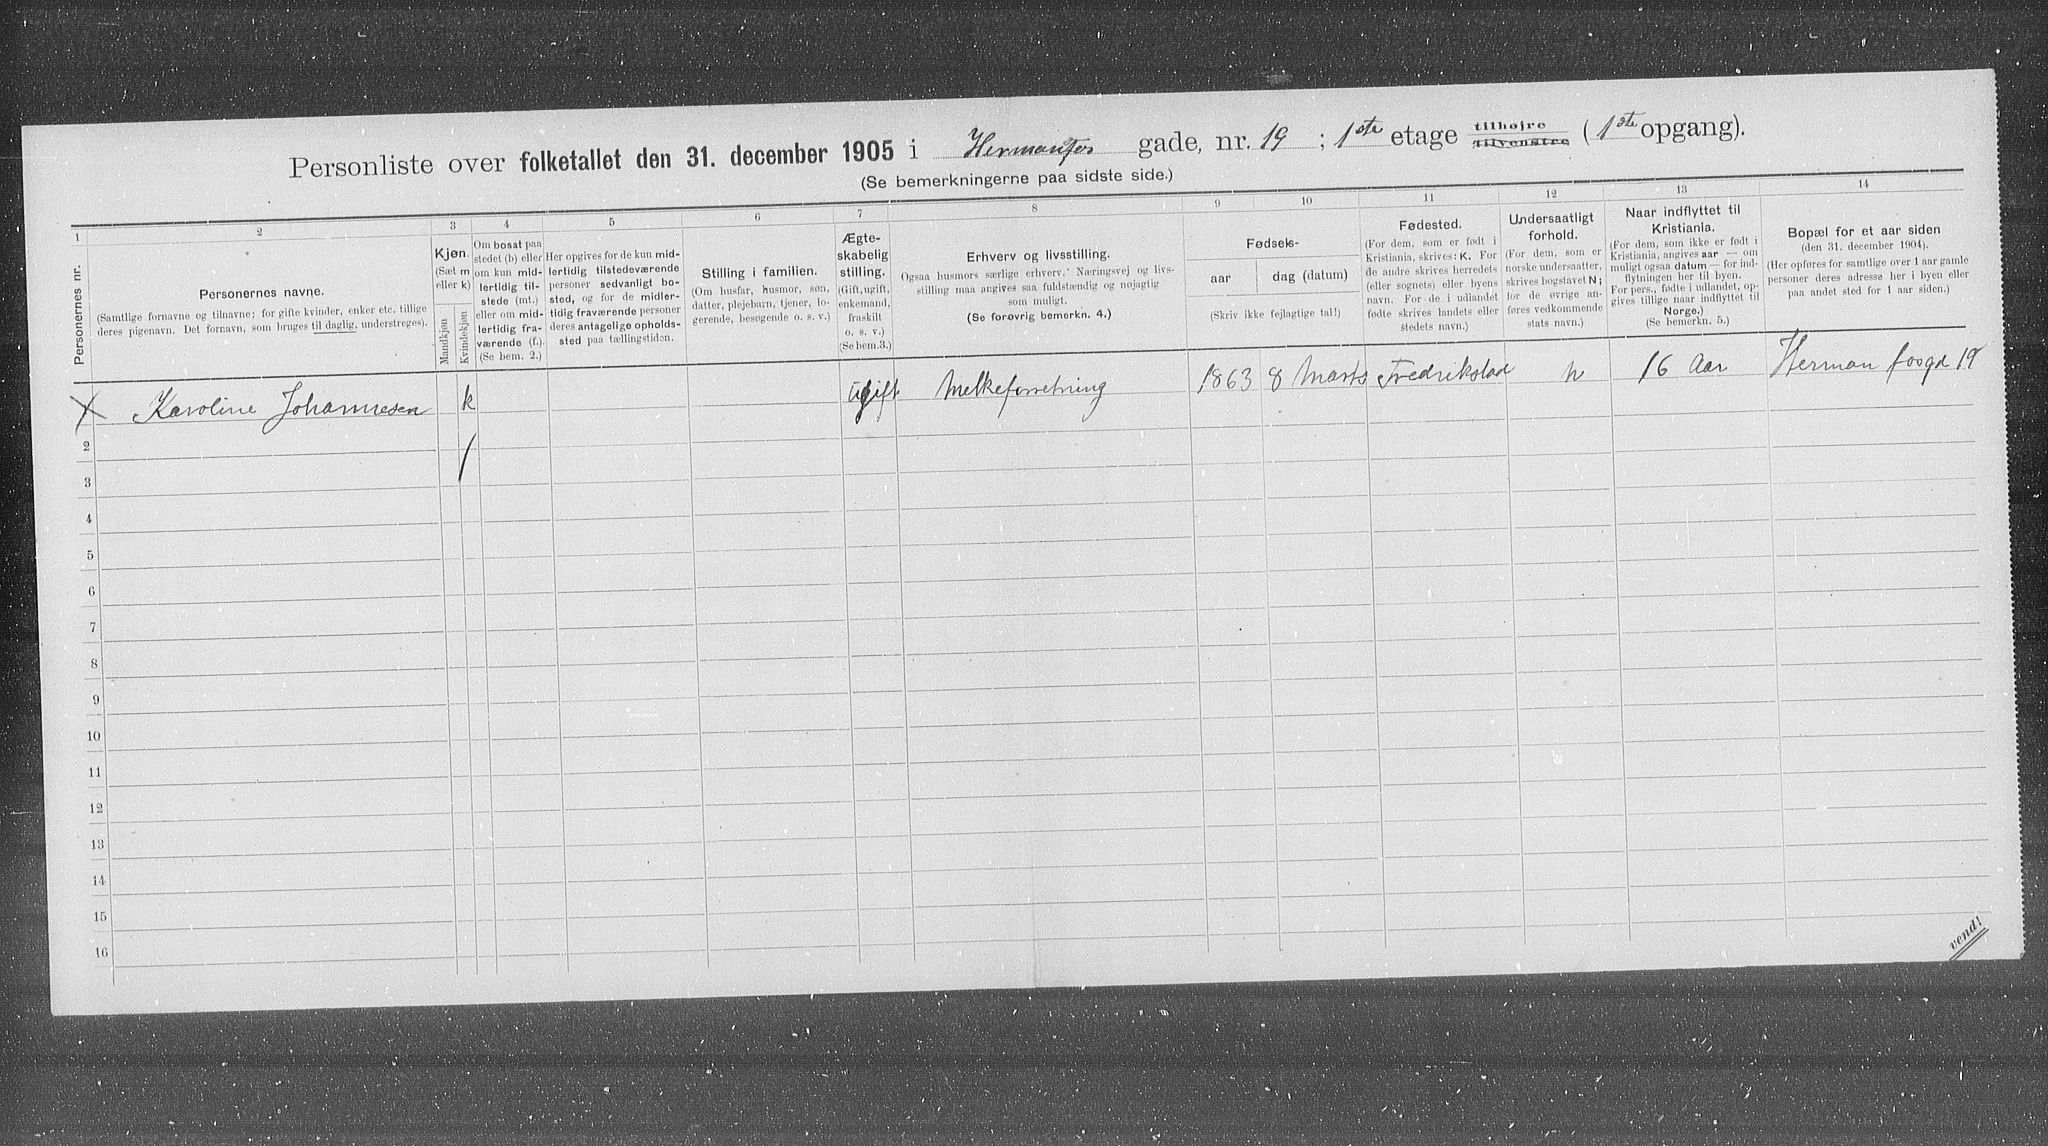 Personliste over folketallet den 31. december 1905 i Hermanfos gade, nr. 19 ; 1ste etage tilhøjre tilvenstre ( 1ste opgang).
(Se bemerkningerne paa sidste side.)
1 2 3 4 5 6 7 8 9 10 11 12 13 14
Personernes nr.
Personernes navne.
(Samtlige fornavne og tilnavne; for gifte kvinder, enker etc. tillige
deres pigenavn. Det fornavn, som bruges til daglig, understreges).
Kjøn.
(Sæt m
eller k)
Mandkjøn
Kvindekjøn
Om bosat paa
stedet (b) eller
om kun mid-
lertidig til-
stede (mt.)
eller om mid-
lertidig fra-
værende (f.)
(Se bem. 2.)
Her opgives for de kun mid-
lertidig tilstedeværende
personer sedvanlig bo-
sted, og for de midler-
tidig fraværende personer
deres antagelige opholds-
sted paa tællingstiden.
Stilling i familien.
(Om husfar, husmor, søn,
datter, plejebarn, tjener, lo-
gerende, besøgende o. s. v.)
Ægte-
skabelig
stilling.
(Gift, ugift,
enkemand,
fraskilt
o. s. v.)
(Se bem.3.)
Erhverv og livsstilling.
Ogsaa husmors særlige erhverv. Næringsvej og livs-
stilling maa angives saa fuldstændig og nøjagtig
som muligt.
(Se forøvrig bemerkn. 4.)
Fødsels-
aar dag (datum)
(Skriv ikke fejlagtige tal!)
Fødested.
(For dem, som er født i
Kristiania, skrives: K. For
de andre skrives herredets
(eller sognets) eller byens
navn. For de i udlandet
fødte skrives landets eller
stedets navn.)
Undersaatligt
forhold.
(For dem, som er
norske undersaatter,
skrives bogstavet N;
for de øvrige an-
føres vedkommende
stats navn.)
Naar indflyttet til
Kristiania.
(For dem, som ikke er født i
Kristiania, angives aar — om
muligt ogsaa datum — for ind-
flytningen her til byen.
For pers., fødte i udlandet, op-
gives tillige naar indflyttet til
Norge.)
(Se bemerkn. 5.)
Bopæl for et aar siden
(den 31. december 1904).
(Her opføres for samtlige over 1 aar gamle
personer deres adresse her i byen eller
paa andet sted for 1 aar siden.)
Karoline Johannesen k ugift Melkeforretning 1863 8 Marts Fredrikstad n 16 Aar Herman foosgd 19
2
3
4
5
6
7
8
9
10
11
12
13
14
15
16
vend!